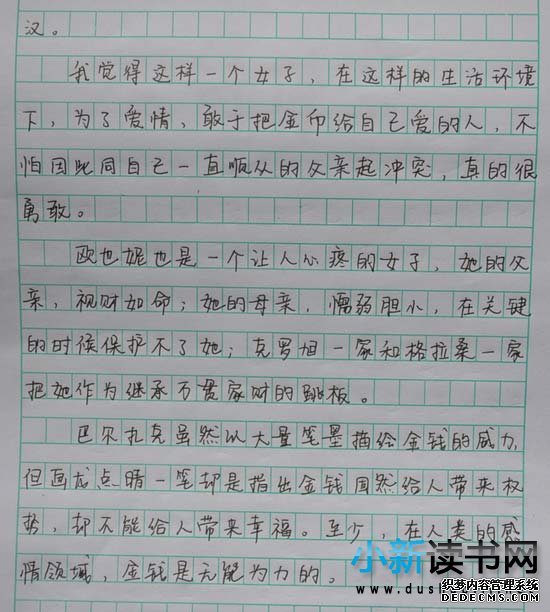 汉。
我觉得这样一个女子，在这样的生活环境
下，为了爱情，敢于把金币给自己爱的人，不
怕因此同自己一直顺从的父亲起冲突，真的很
勇敢。
欧也妮也是一个让人心疼的女子，她的父
亲，视财如命；她的母亲，懦弱胆小，在关键
的时候保护不了她；克罗旭一家和格拉桑一家
把她作为继承万贯家财的跳板。
巴尔扎克虽然以大量笔墨描绘金钱的威力，
但画龙点睛一笔却是指出金钱固然给人带来权
势，却不能给人带来幸福。至少，在人类的感
情领域，金钱是无能为力的。
小新读书网
织梦内容管理系统
DEDECMS.COM